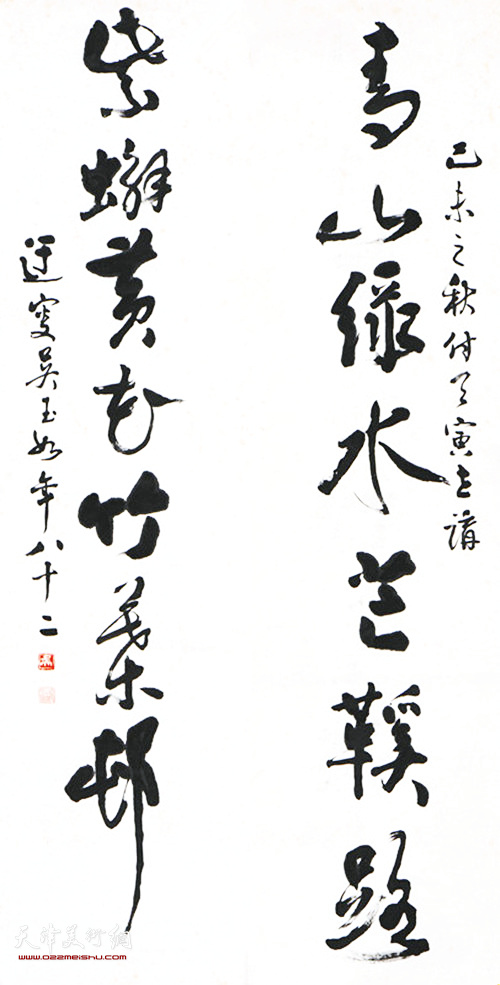 己未之秋付天寅
青山綠水芒鞵路
紫蠏黄花竹葉邨
迂叟吴玉如年八十二
天津美术网
www.022meishu.com